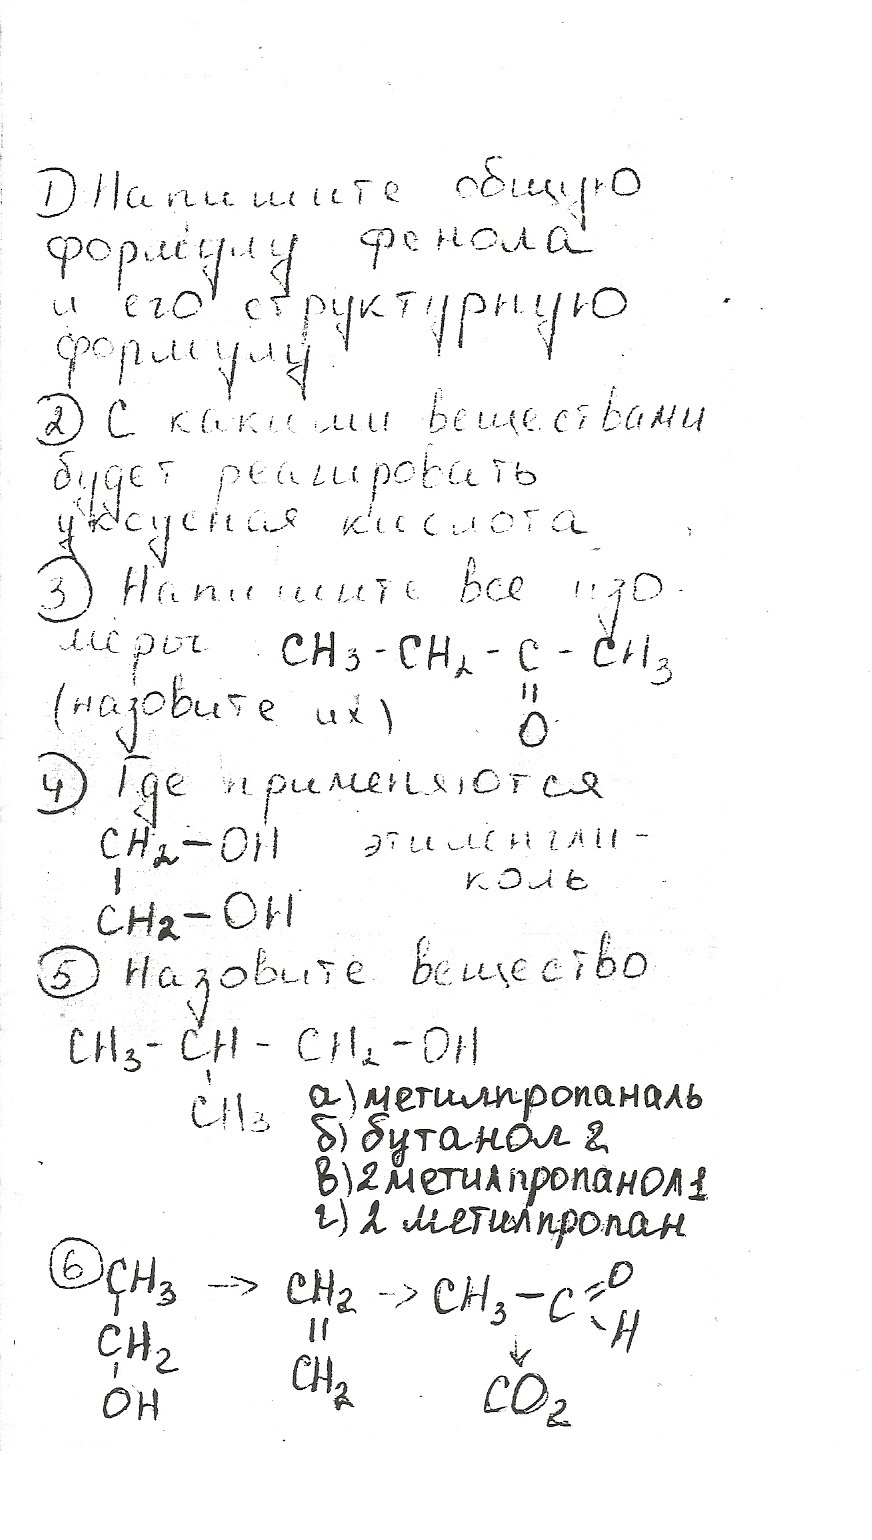 1) Напишите общую
формулу фенола
и его структурную
формулу
2) С какими веществами
будет реагировать
уксусная кислота
3) Напишите все изо-
меры CH3 - CH2 - C - CH3
(назовите их) = O
4) Где применяются
CH2 - OH этиленгли-
коль
CH2 - OH
5) Назовите вещество
CH3 - CH - CH2 - OH
CH3 а) метилпропаналь
б) бутанол 2
в) 2 метилпропанол 1
г) 2 метилпропан
6) CH3 → CH2 → CH3 - C = O
CH2 = CH2 - H
OH ↓ CO2